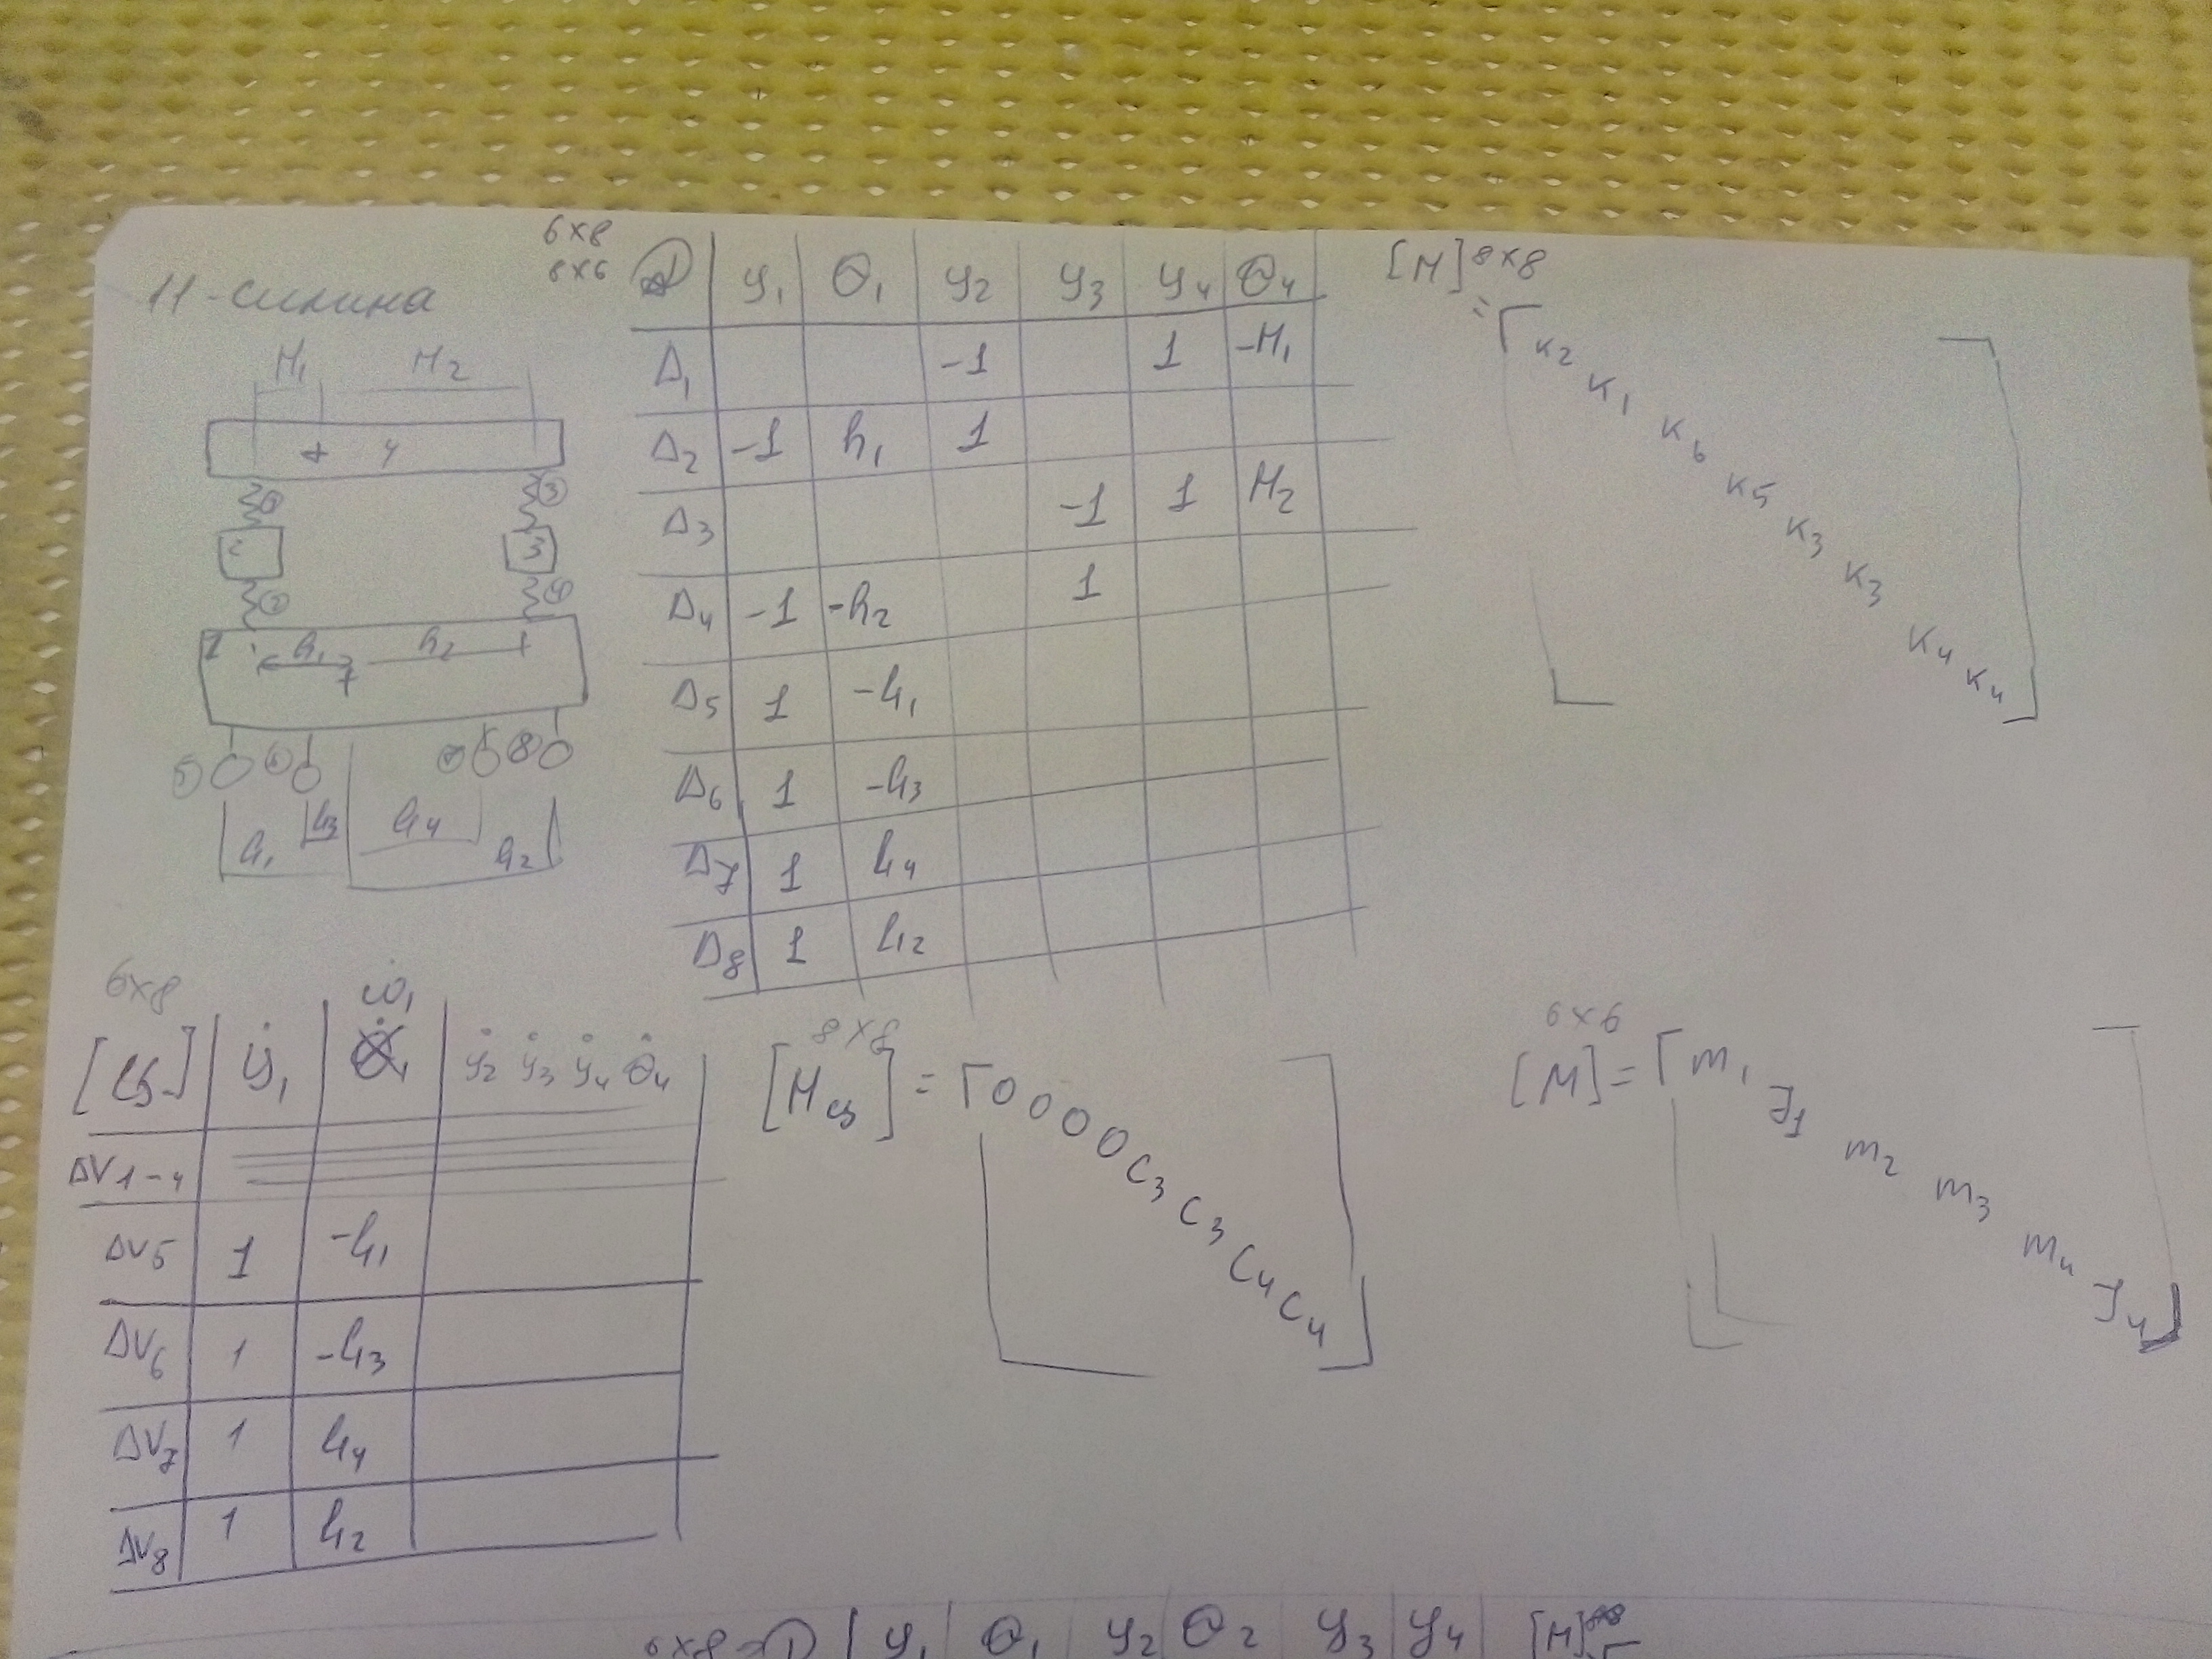 11-силина
H₁ H₂
+ 4
① ③
2 3
② ④
1 h₁ h₂
⑤ ⑥ ⑦ ⑧
l₁ l₃ l₄ l₂
6x8
8x6
D y₁ Θ₁ y₂ y₃ y₄ Θ₄
Δ₁ -1 1 -H₁
Δ₂ -1 h₁ 1
Δ₃ -1 1 H₂
Δ₄ -1 -h₂ 1
Δ₅ 1 -l₁
Δ₆ 1 -l₃
Δ₇ 1 l₄
Δ₈ 1 l₂
[H]⁸ˣ⁸
= ⌈ K₂ K₁ K₆ K₅ K₃ K₃ K₄ K₄ ⌋
6x8
ω₁
[Cв] ẏ₁ ẏ₂ ẏ₃ ẏ₄ Θ̇₄
ΔV₁₋₄
ΔV₅ 1 -l₁
ΔV₆ 1 -l₃
ΔV₇ 1 l₄
ΔV₈ 1 l₂
8x8
[Hсв] = ⌈ 0 0 0 0 C₃ C₃ C₄ C₄ ⌋
6x6
[M] = ⌈ m₁ J₁ m₂ m₃ m₄ J₄ ⌋
6x8 D y₁ Θ₁ y₂ Θ₂ y₃ y₄ [H]